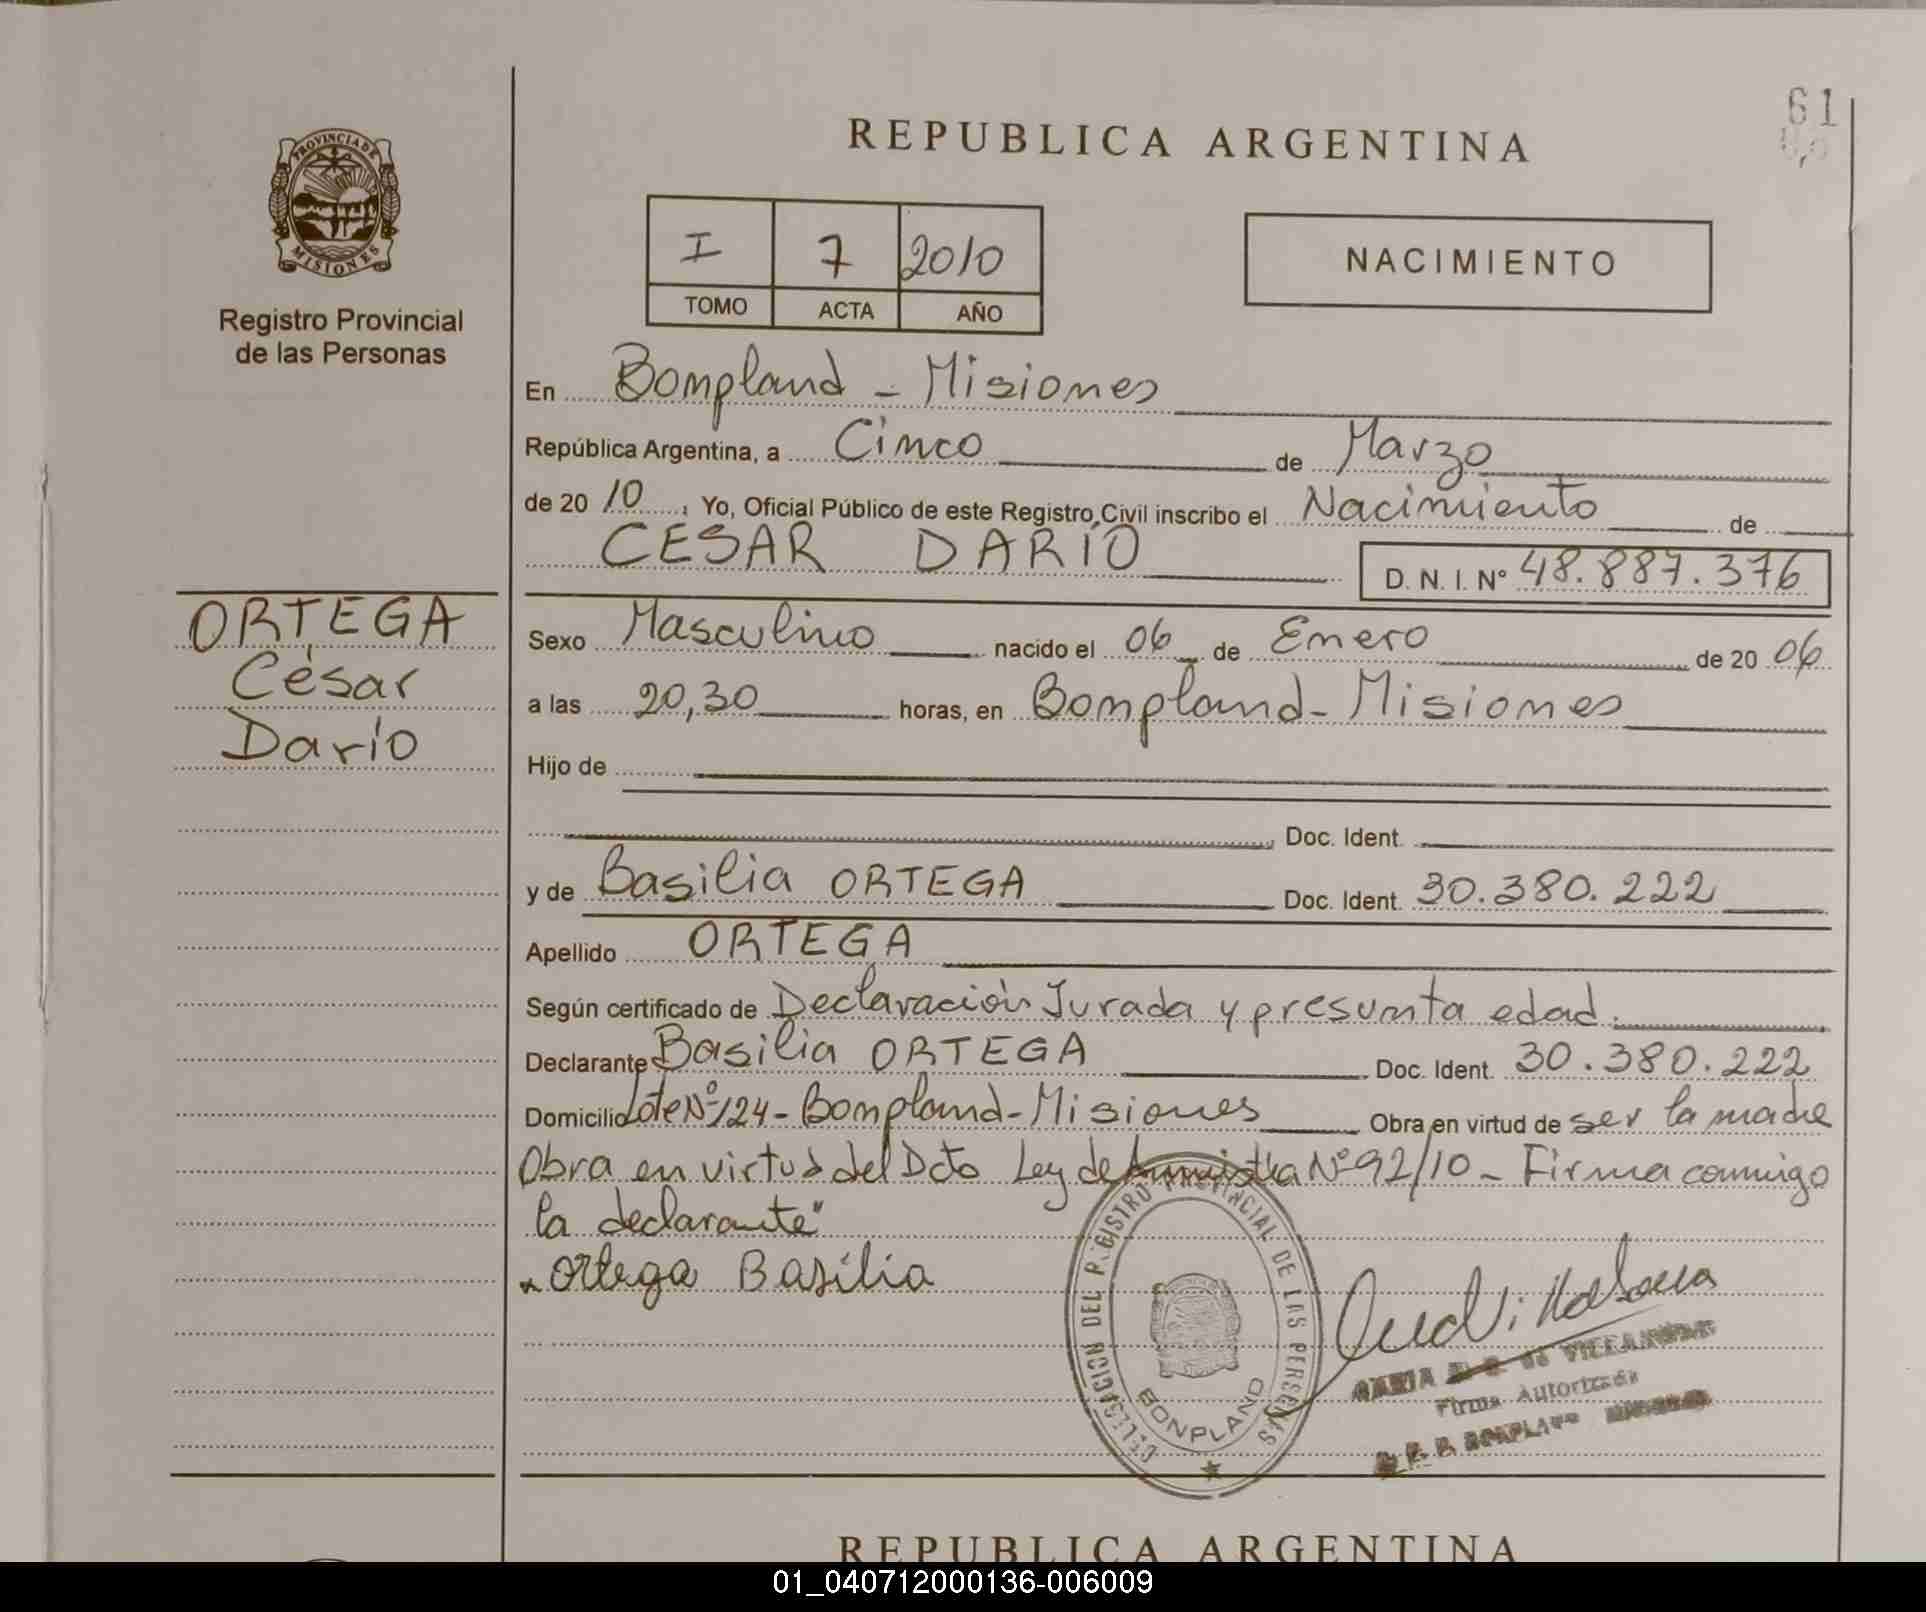 61
PROVINCIA DE
MISIONES
Registro Provincial
de las Personas
REPUBLICA ARGENTINA
I 7 2010
TOMO ACTA AÑO
NACIMIENTO
En Bompland - Misiones
República Argentina, a Cinco de Marzo
de 20 10, Yo, Oficial Público de este Registro Civil inscribo el Nacimiento de
CESAR DARÍO D. N. I. Nº 48.887.376
ORTEGA
César
Darío
Sexo Masculino nacido el 06 de Enero de 20 06
a las 20,30 horas, en Bompland - Misiones
Hijo de
Doc. Ident.
y de Basilia ORTEGA Doc. Ident. 30.380.222
Apellido ORTEGA
Según certificado de Declaración Jurada y presunta edad.
Declarante Basilia ORTEGA Doc. Ident. 30.380.222
Domicilio Lote Nº 124 - Bompland - Misiones Obra en virtud de ser la madre
Obra en virtud del Dcto Ley de Amnistia Nº 92/10 - Firma conmigo
la declarante"
Ortega Basilia
DELEGACION DEL REGISTRO PROVINCIAL DE LAS PERSONAS
BONPLAND
MARIA DE VILLANUEVA
Firma Autorizada
BONPLAND
REPUBLICA ARGENTINA
01_040712000136-006009